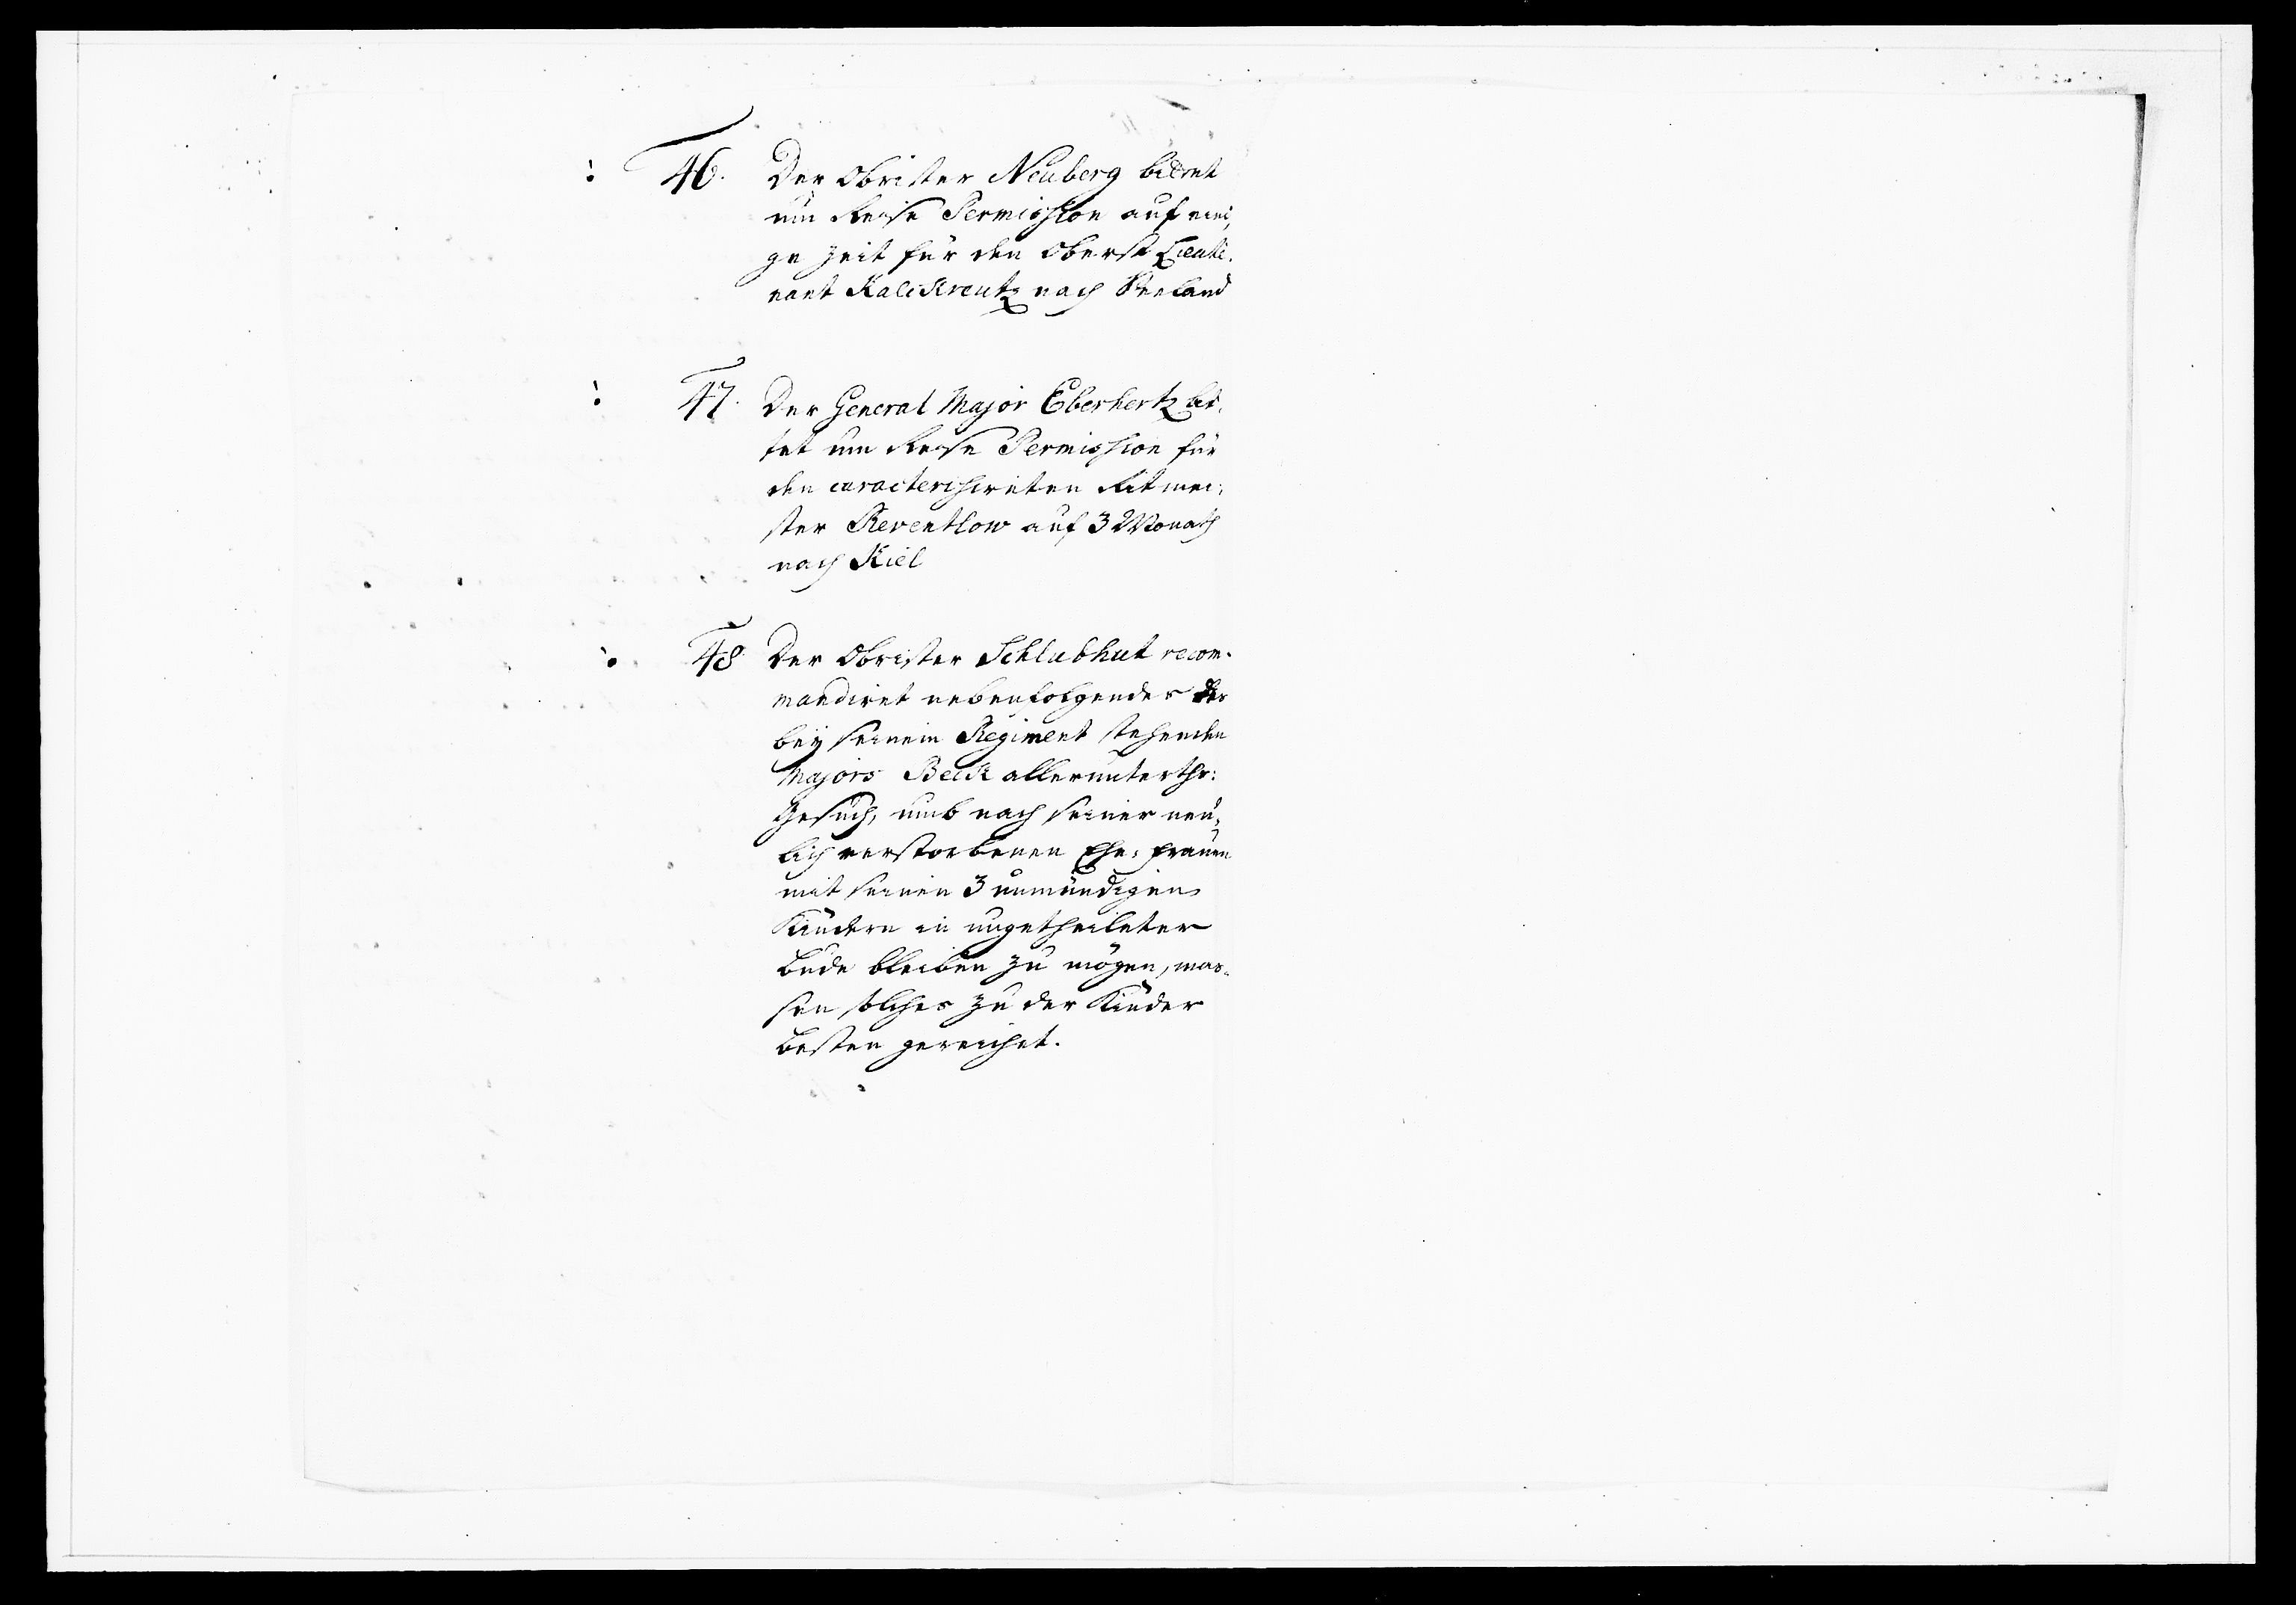 46. Der Obrister Neuberg bittet
um Reise Permission auf eini,
ge Zeit für den Oberst Lieute,
nant Kalckreutz nach Seeland
47. Der General Major Eberhertz bit,
tet um Reise Permission für
den caracterisireten Ritmei,
ster Reventlow auf 3 Monath
nach Kiel
48 Der Obrister Schlubhut recom-
mandiret nebenfolgendes des
bey seinem Regiment stehenden
Majors Beck allerunterth:
Gesuch, umb nach seiner neu,
lich verstorbenen Ehe: Frauen
mit seinen 3 unmündigen
Kindern in ungetheileter
Bude bleiben zu mögen, mas-
sen solches zu der Kinder
besten gereichet.